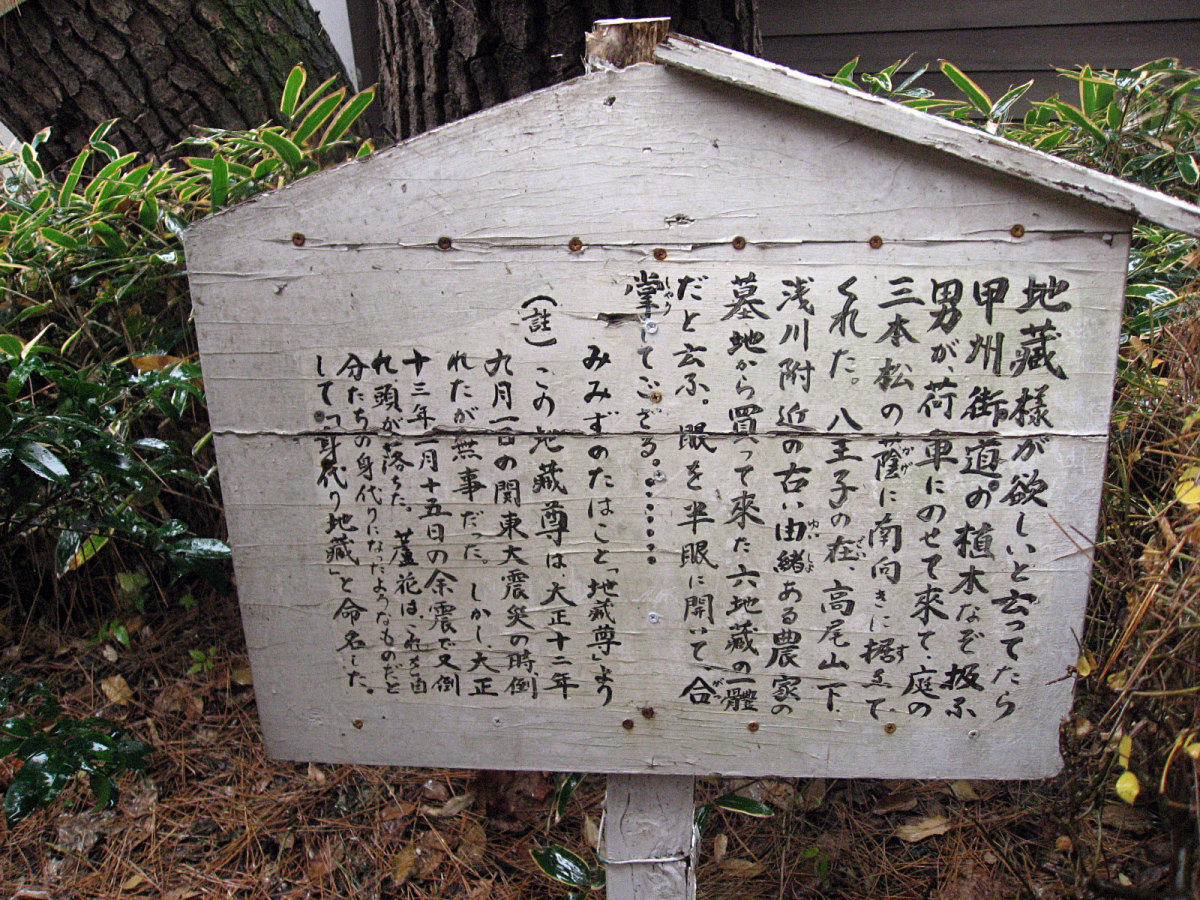 地藏様が欲しいと云ってたら
甲州街道の植木なぞ扱ふ
男が、荷車にのせて来て、庭の
三本松の蔭に南向きに据ゑて
くれた。八王子の在、高尾山下
浅川附近の古い由緒ある農家の
墓地から買って来た六地藏の一體
だと云ふ。眼を半眼に開いて、合
掌してござる。
みみずのたはこと「地藏尊」より
（註）この地藏尊は、大正十二年
九月一日の関東大震災の時、倒
れたが無事だった。しかし大正
十三年一月十五日の余震で又倒
れ、頭が落ちた。蘆花はこれを自
分たちの身代りになったようなものだと
して「身代り地藏」と命名した。